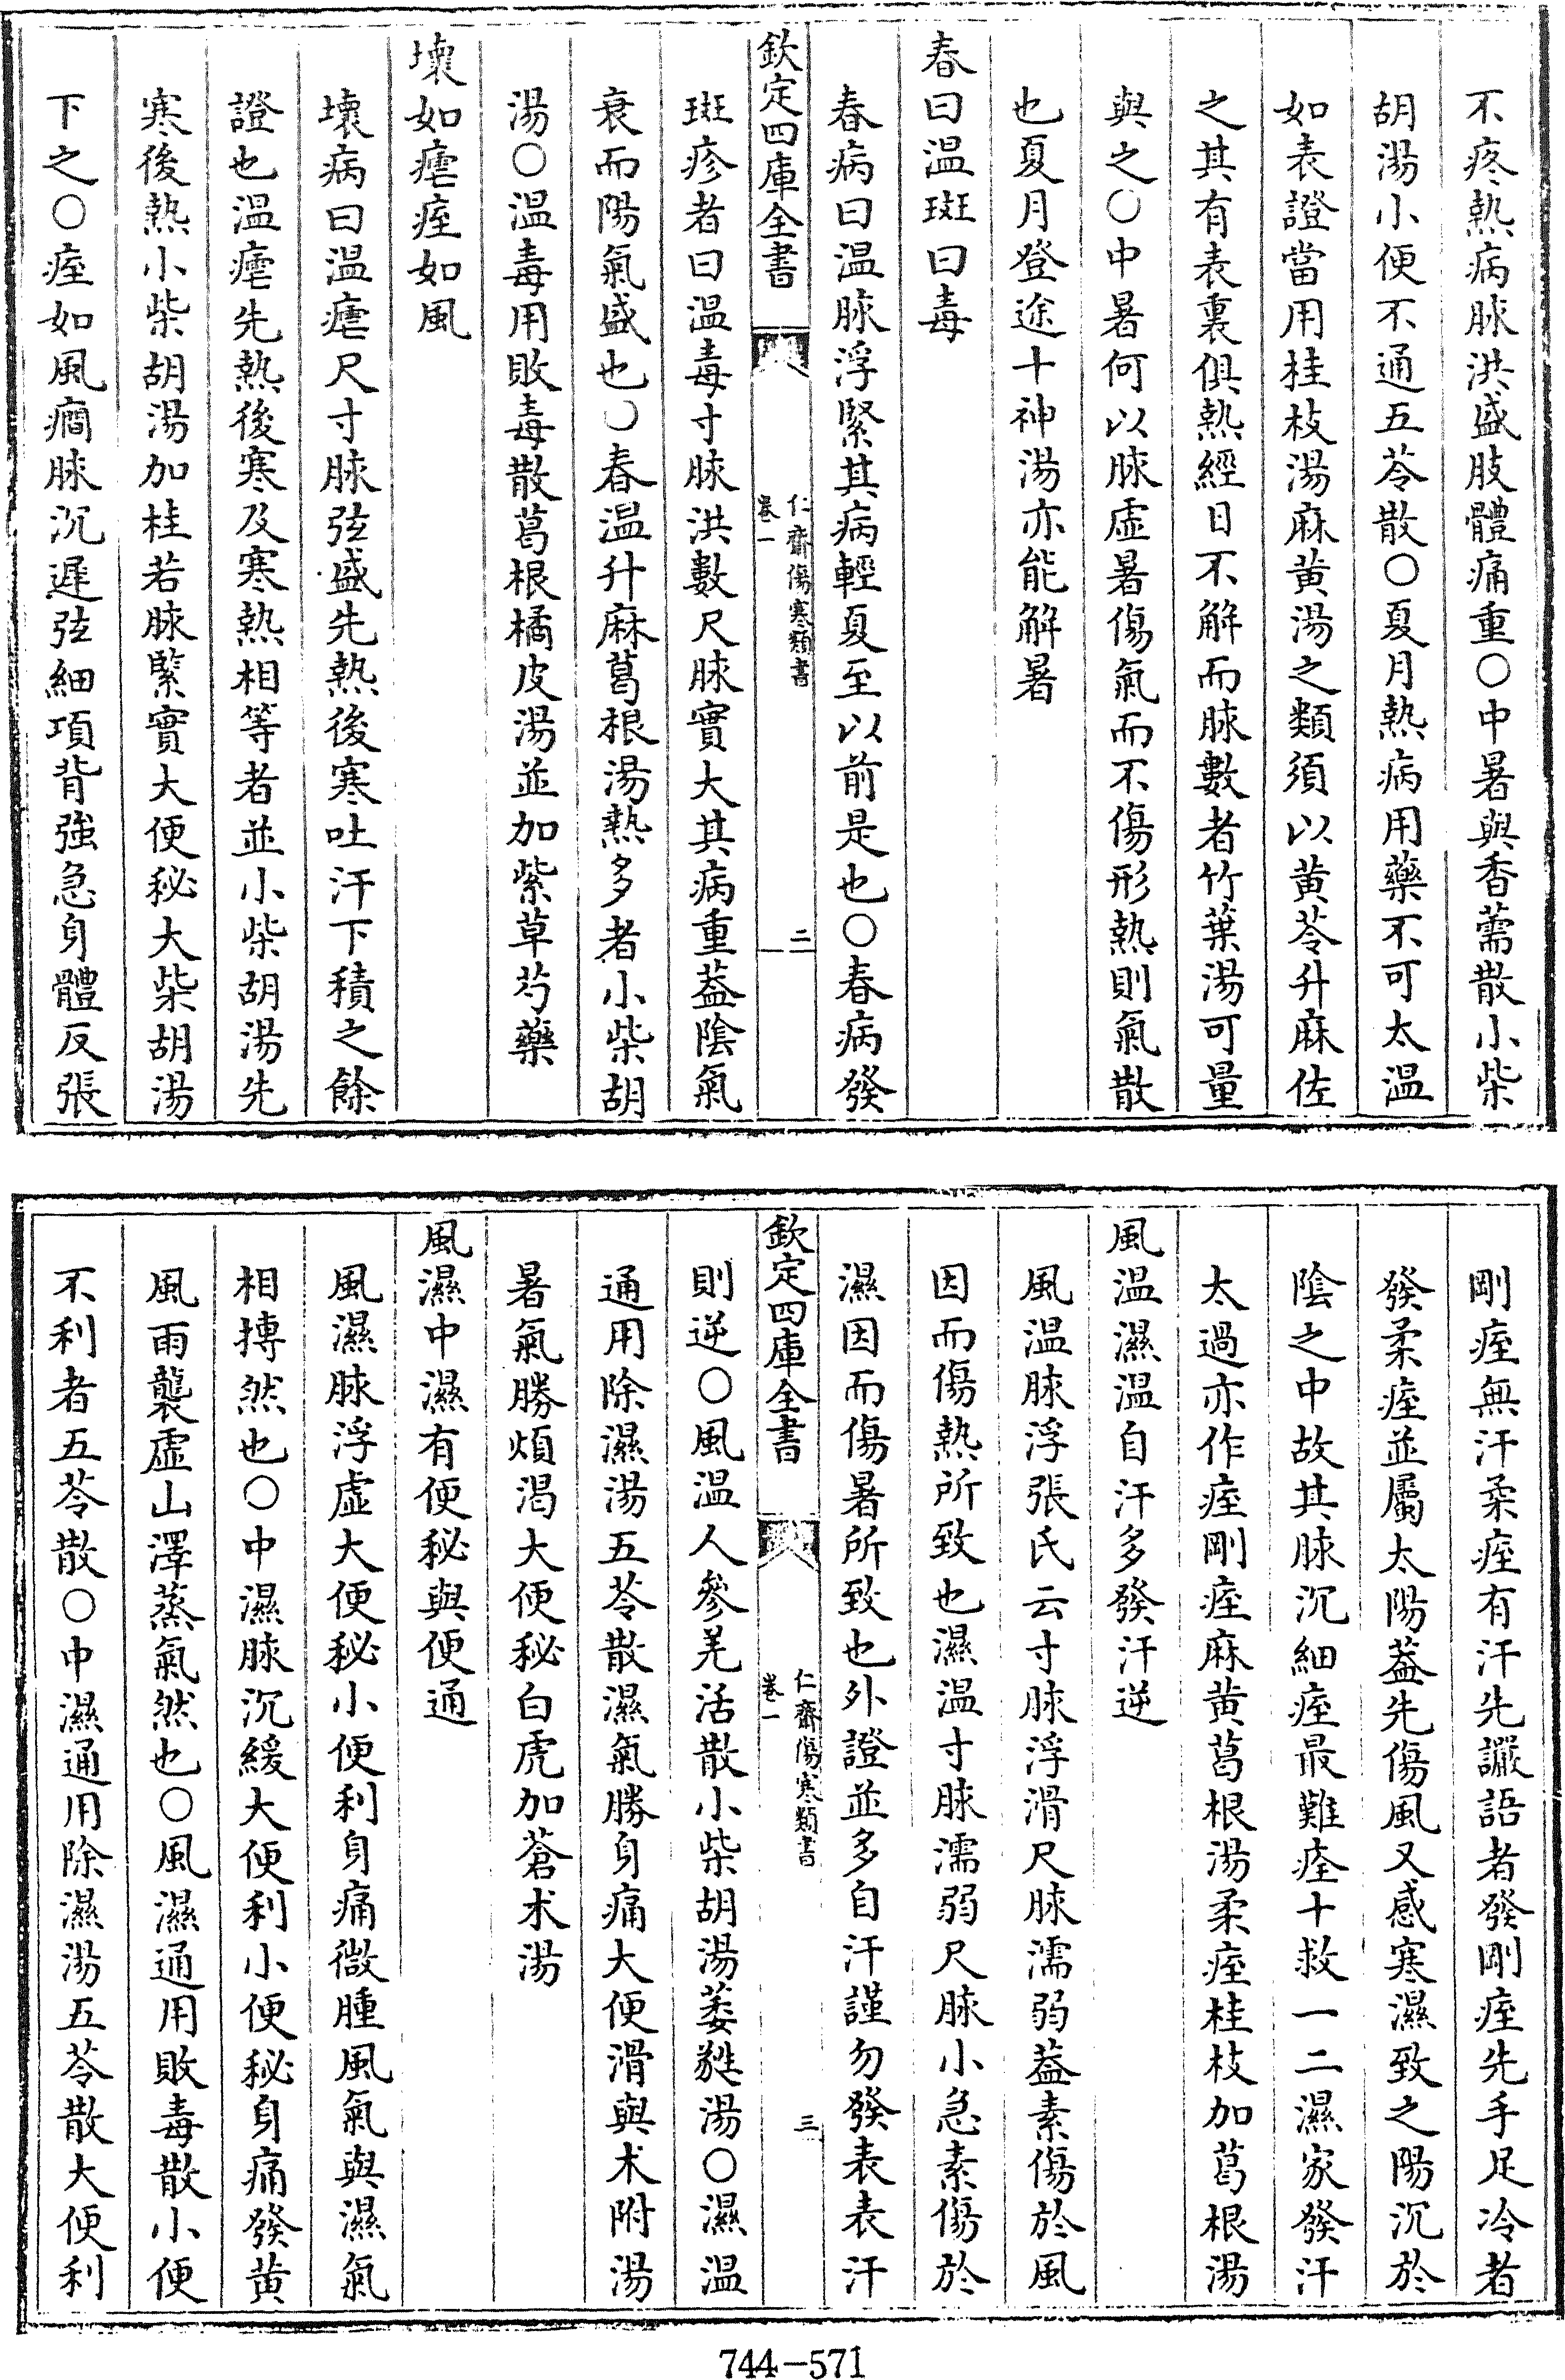 不疼熱病脉洪盛肢體痛重○中暑與香薷散小柴
胡湯小便不通五苓散○夏月熱病用藥不可太温
如表證當用桂枝湯麻黄湯之類須以黄芩升麻佐
之其有表裏俱熱經日不解而脉數者竹葉湯可量
與之○中暑何以脉虛暑傷氣而不傷形熱則氣散
也夏月登途十神湯亦能解暑
春曰温斑曰毒
春病曰温脉浮緊其病輕夏至以前是也○春病發
欽定四庫全書
仁齋傷寒類書
卷一
二
斑疹者曰温毒寸脉洪數尺脉實大其病重葢陰氣
衰而陽氣盛也○春温升麻葛根湯熱多者小柴胡
湯○温毒用敗毒散葛根橘皮湯並加紫草芍藥
壞如瘧痓如風
壞病曰温瘧尺寸脉弦盛先熱後寒吐汗下積之餘
證也温瘧先熱後寒及寒熱相等者並小柴胡湯先
寒後熱小柴胡湯加桂若脉緊實大便秘大柴胡湯
下之○痓如風癎脉沉遲弦細項背強急身體反張
剛痓無汗柔痓有汗先讝語者發剛痓先手足冷者
發柔痓並屬太陽葢先傷風又感寒濕致之陽沉於
陰之中故其脉沉細痓最難痊十救一二濕家發汗
太過亦作痓剛痓麻黄葛根湯柔痓桂枝加葛根湯
風温濕温自汗多發汗逆
風温脉浮張氏云寸脉浮滑尺脉濡弱葢素傷於風
因而傷熱所致也濕温寸脉濡弱尺脉小急素傷於
濕因而傷暑所致也外證並多自汗謹勿發表表汗
欽定四庫全書
仁齋傷寒類書
卷一
三
則逆○風温人參羌活散小柴胡湯萎甤湯○濕温
通用除濕湯五苓散濕氣勝身痛大便滑與术附湯
暑氣勝煩渴大便秘白虎加蒼术湯
風濕中濕有便秘與便通
風濕脉浮虛大便秘小便利身痛微腫風氣與濕氣
相搏然也○中濕脉沉緩大便利小便秘身痛發黄
風雨襲虛山澤蒸氣然也○風濕通用敗毒散小便
不利者五苓散○中濕通用除濕湯五苓散大便利
744-571